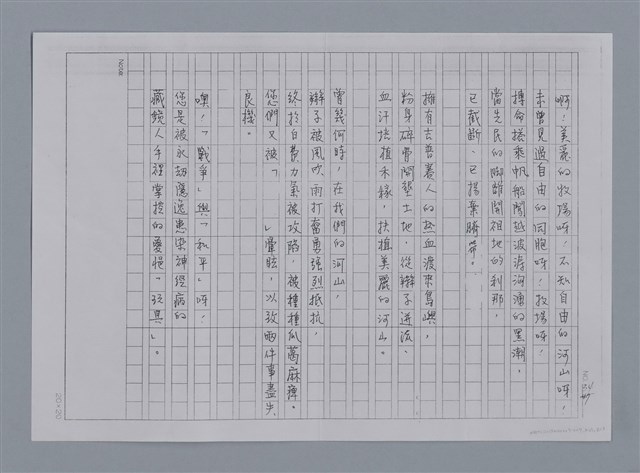 啊！美麗的牧場呀！不知自由的河山呀！
未曾見過自由的同胞呀！牧場呀！
搏命搭乘帆船闖越波濤洶湧的黑潮，
當先民的腳離開祖地的剎那，
已截斷、已揚棄臍帶。
擁有去普基人的熱血渡來島嶼，
粉身碎骨開墾土地，從辮子迸流
血汗扶植禾緣，扶植美麗的河山。
曾幾何時，在我們的河山，
辮子被風吹雨打奮勇強烈抵抗，
終於白費力氣被攻陷，被種種瓜葛麻痺。
您們又被「　　」暈眩，以致兩件事盡失
良機。
噢！「戰爭」與「和平」呀！
您是被永劫隱逸患染神經病的
藏鏡人手裡掌控的憂悒「玩具」。
Note
NO.
20×20